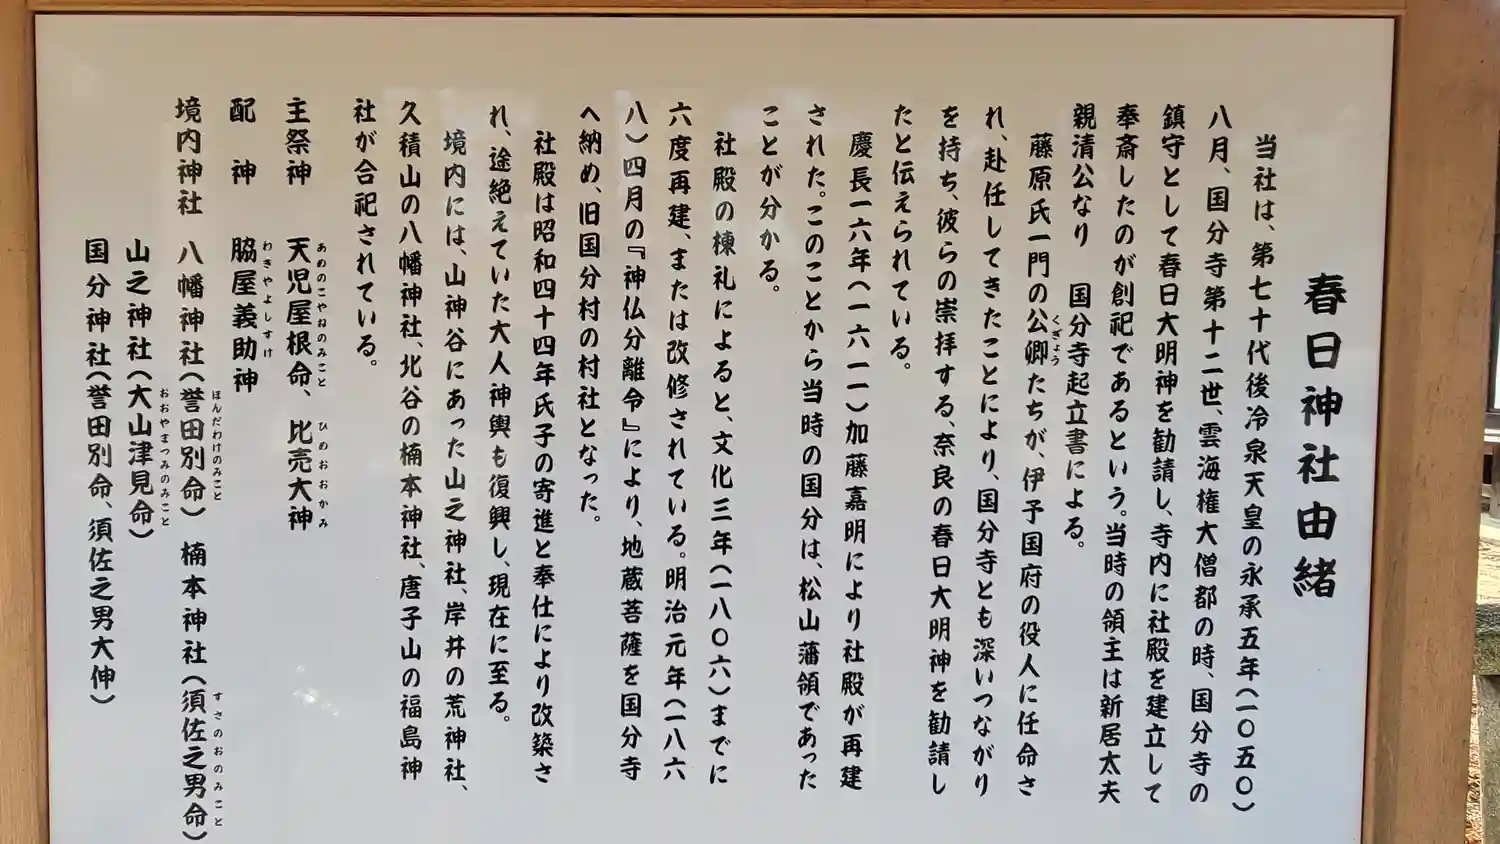 春日神社由緒
当社は、第七十代後冷泉天皇の永承五年(一〇五〇)
八月、国分寺第十二世、雲海権大僧都の時、国分寺の
鎮守として春日大明神を勧請し、寺内に社殿を建立して
奉斎したのが創祀であるという。当時の領主は新居太夫
親清公なり 国分寺起立書による。
藤原氏一門の公卿たちが、伊予国府の役人に任命さ
くぎょう
れ、赴任してきたことにより、国分寺とも深いつながり
を持ち、彼らの崇拝する、奈良の春日大明神を勧請し
たと伝えられている。
慶長一六年(一六一一)加藤嘉明により社殿が再建
された。このことから当時の国分は、松山藩領であった
ことが分かる。
社殿の棟礼によると、文化三年(一八〇六)までに
六度再建、または改修されている。明治元年(一八六
八)四月の『神仏分離令』により、地蔵菩薩を国分寺
へ納め、旧国分村の村社となった。
社殿は昭和四十四年氏子の寄進と奉仕により改築さ
れ、途絶えていた大人神輿も復興し、現在に至る。
境内には、山神谷にあった山之神社、岸井の荒神社、
久積山の八幡神社、北谷の楠本神社、唐子山の福島神
社が合祀されている。
主祭神 天児屋根命、比売大神
あめのこやねのみこと ひめのおおかみ
配 神 脇屋義助神
わきやよしすけ
境内神社 八幡神社(誉田別命) 楠本神社(須佐之男命)
ほんだわけのみこと すさのおのみこと
山之神社(大山津見命)
おおやまつみのみこと
国分神社(誉田別命、須佐之男大伸)